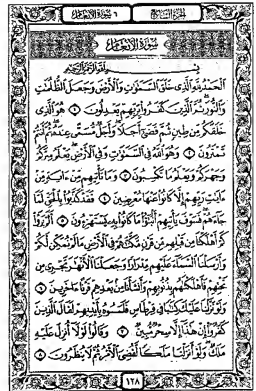 الجزء السابع ٦ سورة الأنعام
سورة الأنعام
بسم الله الرحمن الرحيم
الحمد لله الذي خلق السموات والأرض وجعل الظلمت
والنور ثم الذين كفروا بربهم يعدلون ١ هو الذي
خلقكم من طين ثم قضى أجلا وأجل مسمى عنده ثم أنتم
تمترون ٢ وهو الله في السموات وفي الأرض يعلم سركم
وجهركم ويعلم ما تكسبون ٣ وما تأتيهم من ءاية من
ءايت ربهم إلا كانوا عنها معرضين ٤ فقد كذبوا بالحق لما
جاءهم فسوف يأتيهم أنبؤا ما كانوا به يستهزءون ٥ ألم يروا
كم أهلكنا من قبلهم من قرن مكنهم في الأرض ما لم نمكن لكم
وأرسلنا السماء عليهم مدرارا وجعلنا الأنهر تجري من
تحتهم فأهلكنهم بذنوبهم وأنشأنا من بعدهم قرنا ءاخرين ٦
ولو نزلنا عليك كتبا في قرطاس فلمسوه بأيديهم لقال الذين
كفروا إن هذا إلا سحر مبين ٧ وقالوا لولا أنزل عليه
ملك ولو أنزلنا ملكا لقضي الأمر ثم لا ينظرون ٨
١٢٨